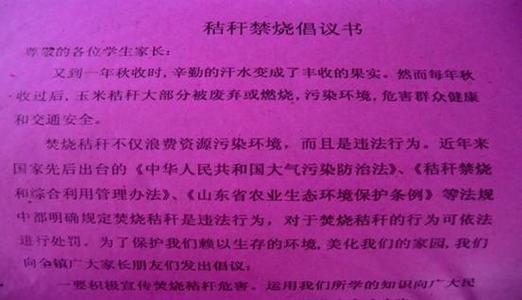 秸秆禁烧倡议书
尊敬的各位学生家长：
又到一年秋收时，辛勤的汗水变成了丰收的果实。然而每年秋
收过后，玉米秸秆大部分被废弃或燃烧，污染环境，危害群众健康
和交通安全。
焚烧秸秆不仅浪费资源污染环境，而且是违法行为。近年来
国家先后出台的《中华人民共和国大气污染防治法》、《秸秆禁烧
和综合利用管理办法》、《山东省农业生态环境保护条例》等法规
中都明确规定焚烧秸秆是违法行为，对于焚烧秸秆的行为可依法
进行处罚。为了保护我们赖以生存的环境，美化我们的家园，我们
向全镇广大家长朋友们发出倡议：
一要积极宣传焚烧秸秆危害。运用我们所学的知识向广大民